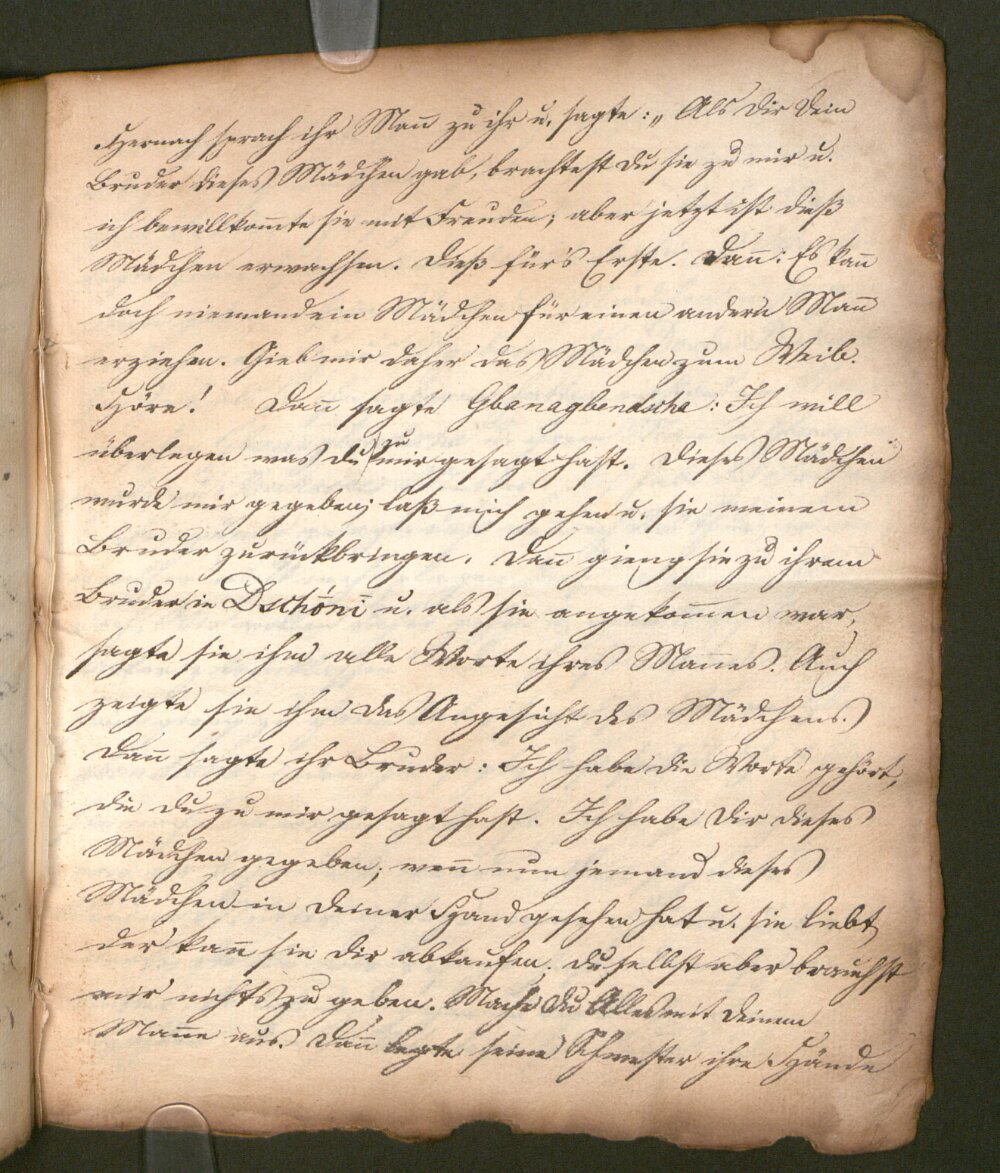 Hernach sprach ihr Mann zu ihr u. sagte: „Als dir dein
Bruder dieses Mädchen gab, brachtest du sie zu mir u.
ich bewillkom̄te sie mit Freuden; aber jetzt ist dieß
Mädchen erwachsen. Dieß für's Erste. Dan̄: Es kan̄
doch niemand ein Mädchen für einen andern Man̄
erziehen. Gieb mir daher das Mädchen zum Weibe.
Höre! Dan̄ sagte Gbanagbendscha: Ich will
überlegen was du zu mir gesagt hast. Dieses Mädchen
wurde mir gegeben; laß mich gehen u. sie meinem
Bruder zurückbringen. Dan̄ gieng sie zu ihrem
Bruder in Dschōni u. als sie angekom̄en war,
sagte sie ihm alle Worte ihres Man̄es. Auch
zeigte sie ihm das Angesicht des Mädchens.
Dan̄ sagte ihr Bruder: Ich habe die Worte gehört,
die du zu mir gesagt hast. Ich habe dir dieses
Mädchen gegeben; wen̄ nun jemand dieses
Mädchen in deiner Hand gesehen hat u. sie liebt
der kan̄ sie dir abkaufen. Du selbst aber brauchst
mir nichts zu geben. Mache du Alles mit deinem
Man̄e aus. Dan̄ legte seine Schwester ihre Hände